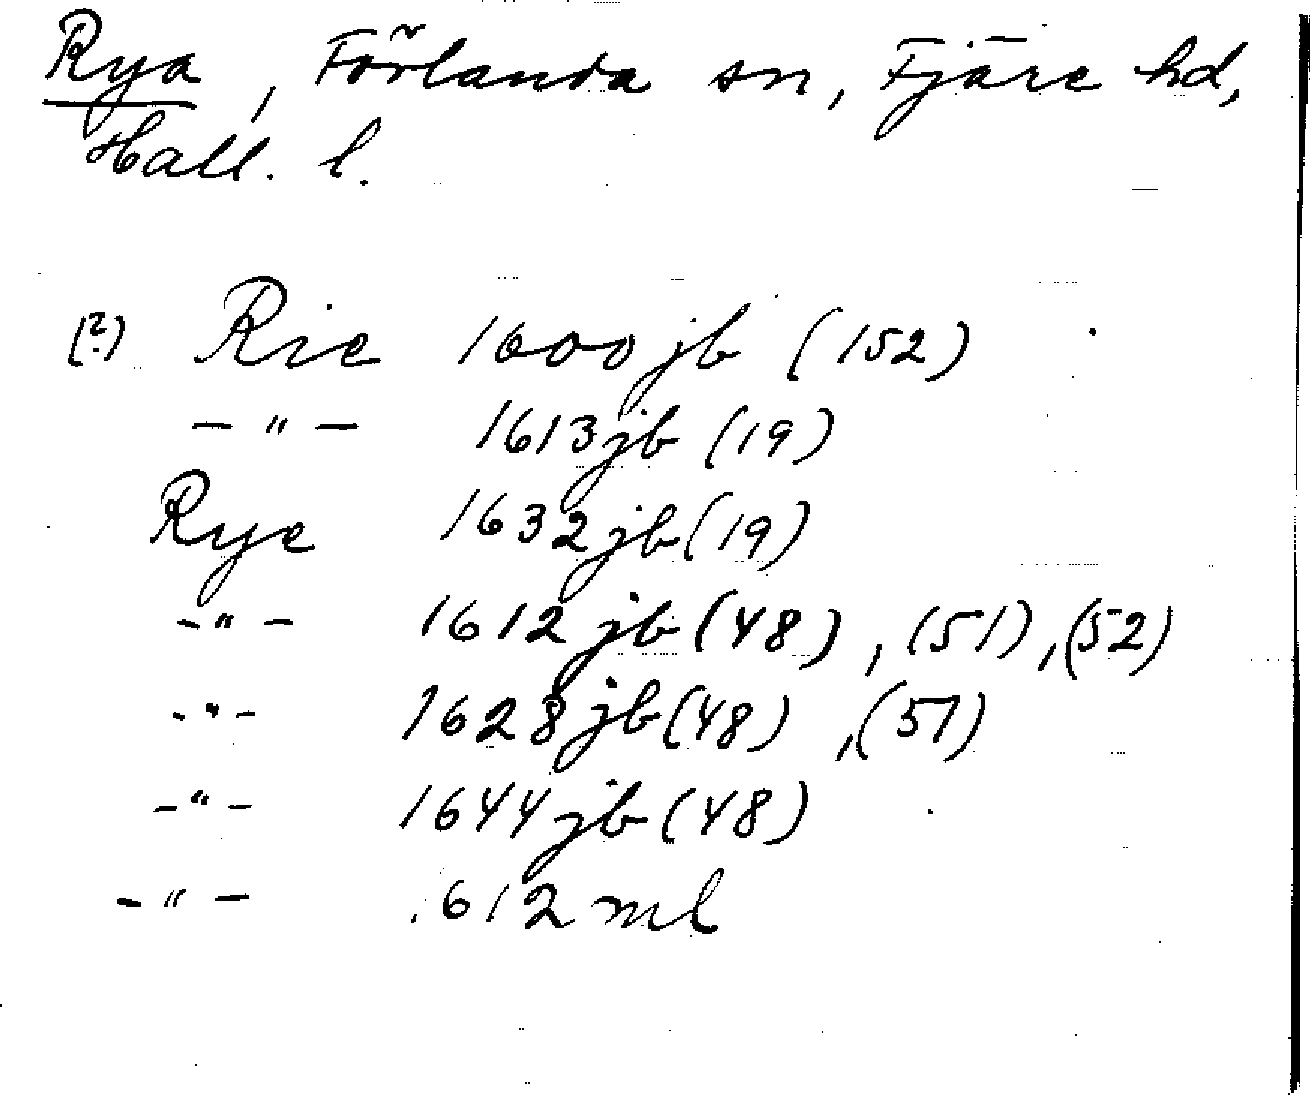 Rya, Förlanda sn, Fjäre hd,
Hall. l.
(?) Rie 1600 jb (152)
— " — 1613 jb (19)
Rye 1632 jb (19)
- " - 1612 jb (48), (51), (52)
- " - 1628 jb (48), (51)
- " - 1644 jb (48)
- " - 1612 ml